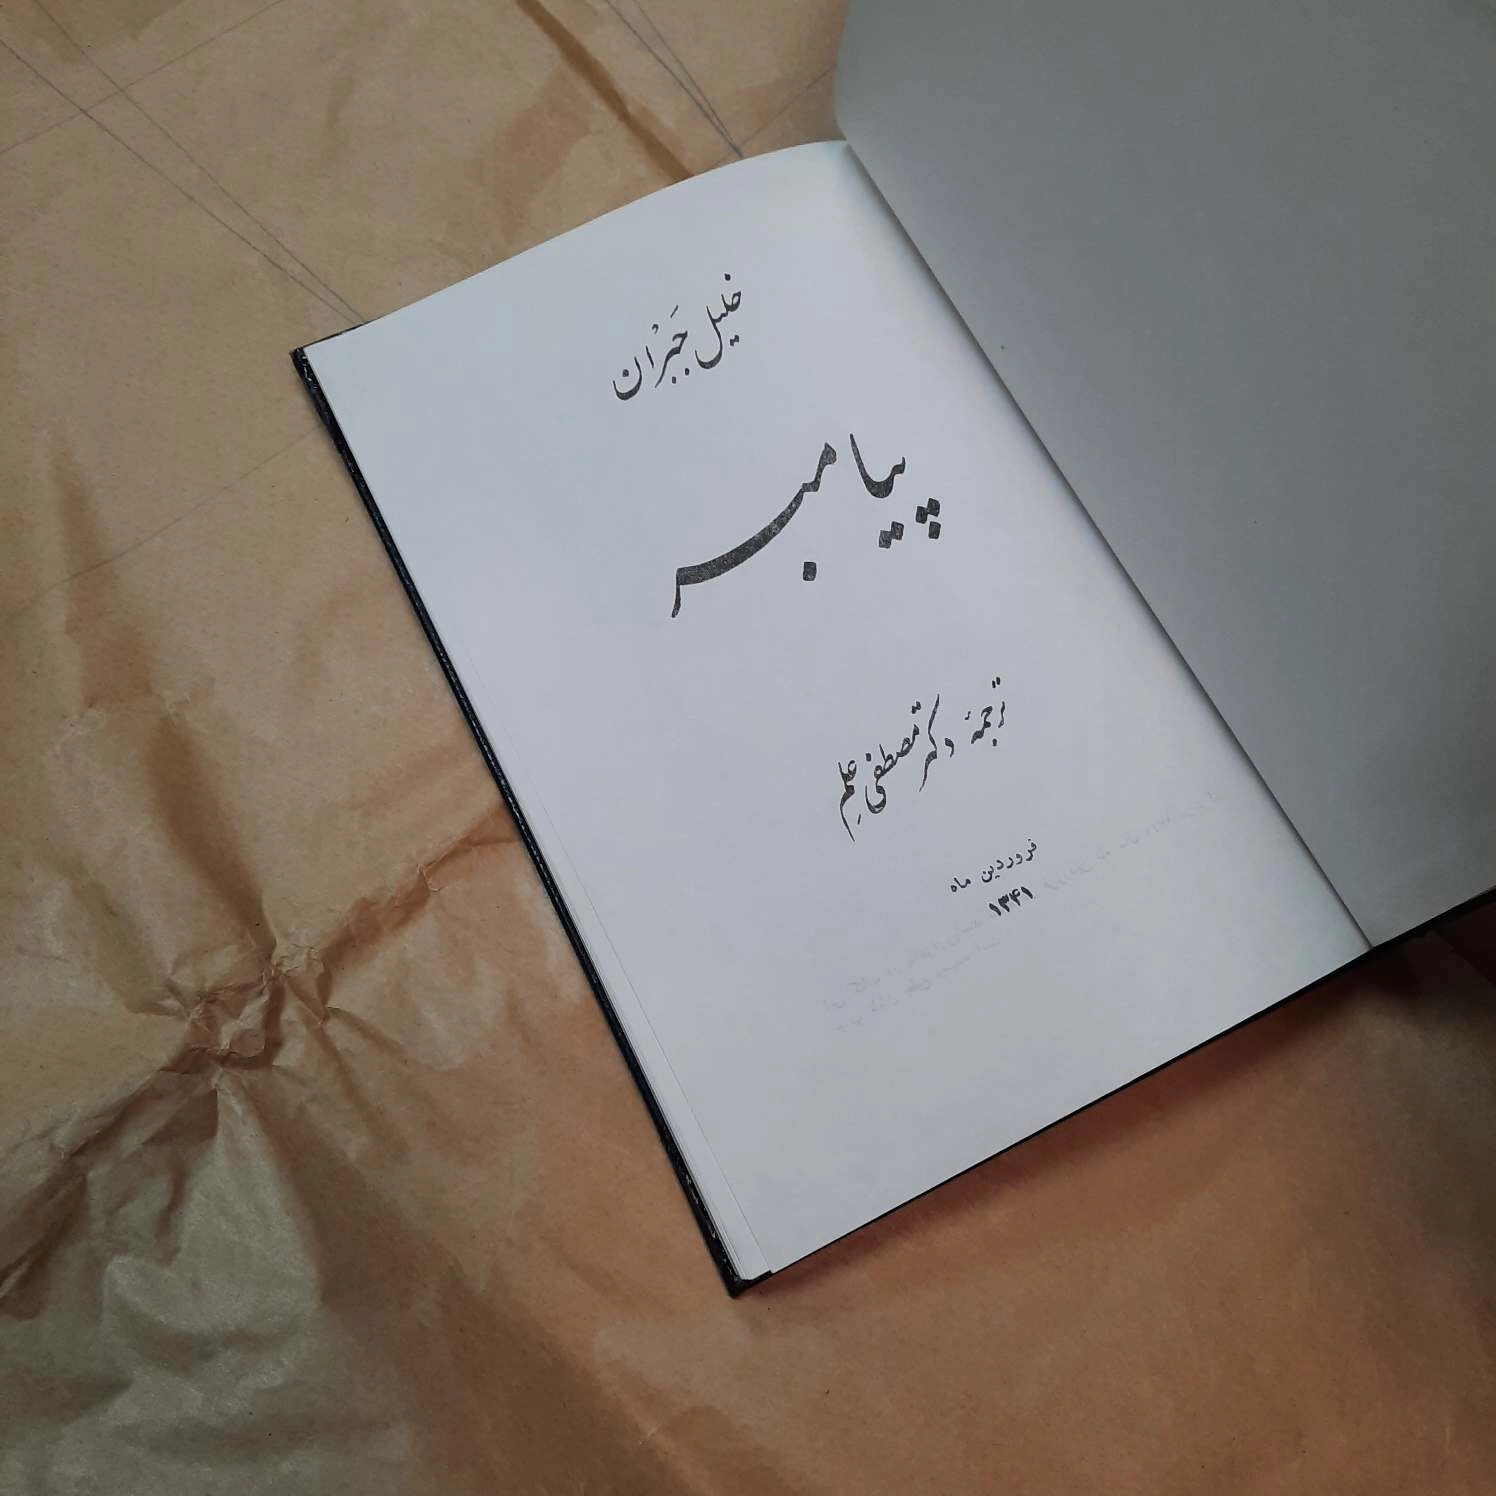 خلیل جَبْران
پیامبر
ترجمهٔ دکتر مصطفی علمِ
فروردین ماه
۱۳۴۱